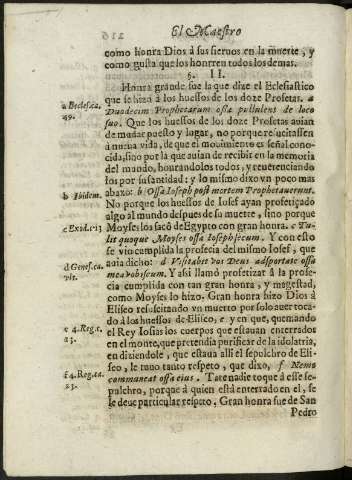 El Maestro
como honra Dios à sus sieruos en la muerte, y
como gusta que los honrren todos los demas.
§. II.
Honra grande fue la que dize el Eclesiastico
que se hizo à los huessos de los doze Profetas. a
Duodecim Prophetarum ossa pullulent de loco
suo. Que los huessos de los doze Profetas auian
de mudar puesto y lugar, no porque resucitassen
à nueua vida, de que el mouimiento es señal conocida,
sino por la que auian de recibir en la memoria
del mundo, honrandolos todos, y reuerenciando
los por su santidad: y lo mismo dixo vn poco mas
abaxo: b Ossa Ioseph post mortem Prophetauerunt.
No porque los huessos de Iosef ayan profetiçado
algo al mundo despues de su muerte, sino porque
Moyses los sacò de Egypto con gran honra. c Tulit
quoque Moyses ossa Ioseph secum. Y con esto
se vio cumplida la profecia del mismo Iosef, que
auia dicho: d Visitabit vos Deus adsportate ossa
mea vobiscum. Y asi llamò profetizar à la profecia
cumplida con tan gran honra, y magestad,
como Moyses lo hizo. Gran honra hizo Dios à
Eliseo resucitando vn muerto por solo auer tocado
à los huessos de Eliseo, e y en que, quemando
el Rey Iosias los cuerpos que estauan enterrados
en el monte, que pretendia purificar de la idolatria,
en diziendole, que estaua alli el sepulchro de Eliseo,
le tuuo tanto respeto, que dixo, f Nemo
commoneat ossa eius. Tate nadie toque à esse sepulchro,
porque à quien està enterrado en el, se
le deue particular respeto. Gran honra fue de San
Pedro
a Eccles. ca.
49.
b Ibidem.
c Exod. c 13
d Genes. ca.
vlt.
e 4. Reg. c.
23.
f 4. Reg. ca.
23.